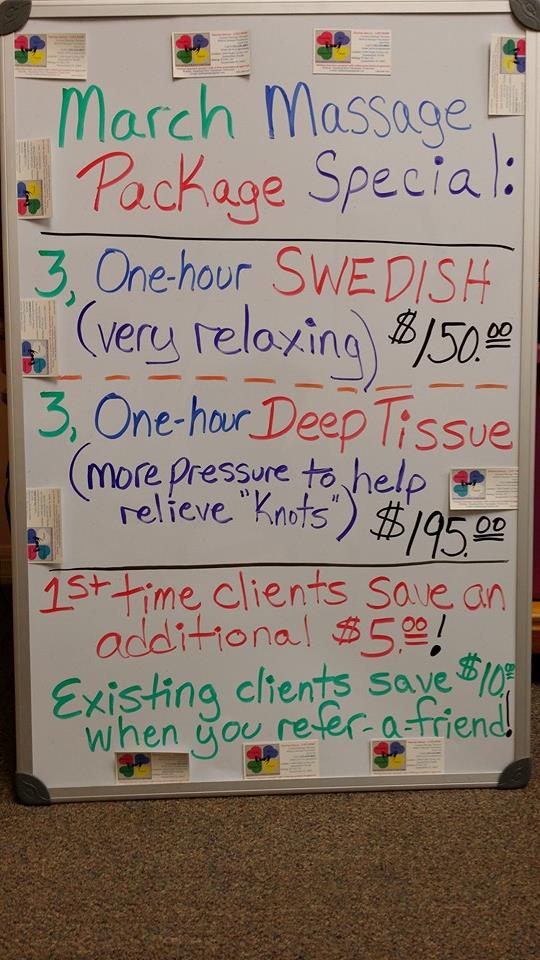 March Massage
Package Special:
3, One-hour SWEDISH
(very relaxing) $150.00
3, One-hour Deep Tissue
(more pressure to help
relieve "Knots") $195.00
1st time clients save an
additional $5.00!
Existing clients save $10.00
when you refer-a-friend!